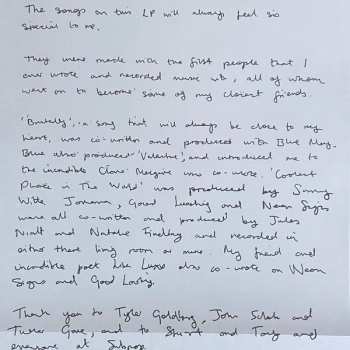 The songs on this LP will always feel so
special to me.
They were made with the first people that I
ever wrote and recorded music with, all of whom
went on to become some of my closest friends.
'Brutally', a song that will always be close to my
heart, was co-written and produced with Blue May.
Blue also produced 'Valentine', and introduced me to
the incredible Clare Maguire who co-wrote. 'Coolest
Place in The World' was produced by Sunny
With Jomanna, Good Luck and Neon Signs
were all co-written and produced by Jules
and Natalie Findlay and recorded in
either there living room or mine. My friend and
incredible poet also co-wrote on Neon
Signs and Good
Thank you to Tyler Goldberg, John and
and to Stuart and Tony and
everyone at Subpop